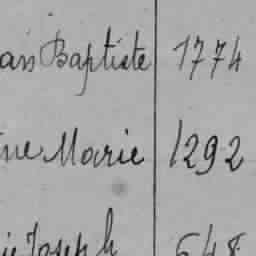 Baptiste 1774
Marie 1292
Joseph 648